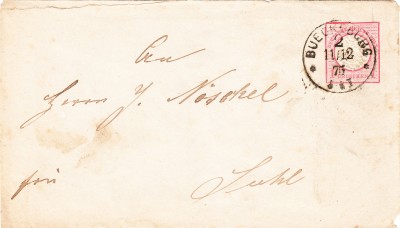 BUECKEBURG
2
11/12
75
An
Herrn J. Nöschel
frei Suhl